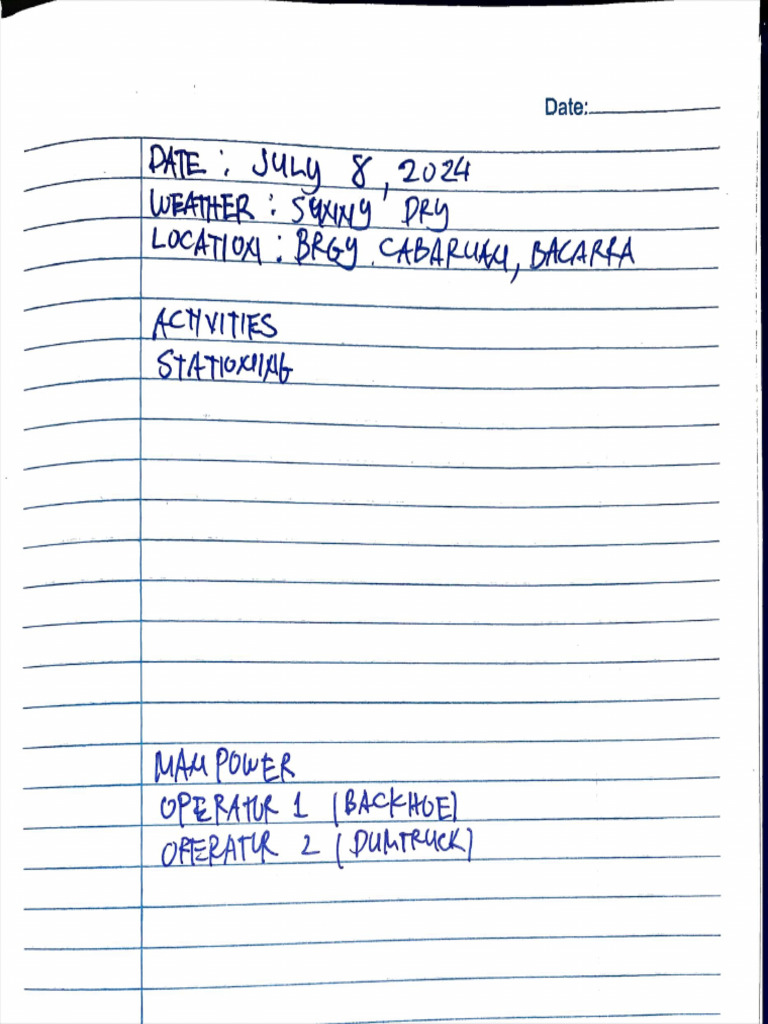 Date:
DATE : JULY 8, 2024
WEATHER : SUNNY DRY
LOCATION : BRGY. CABARUAN, BACARRA
ACTIVITIES
STATIONING
MAN POWER
OPERATOR 1 (BACKHOE)
OPERATOR 2 (DUMTRUCK)